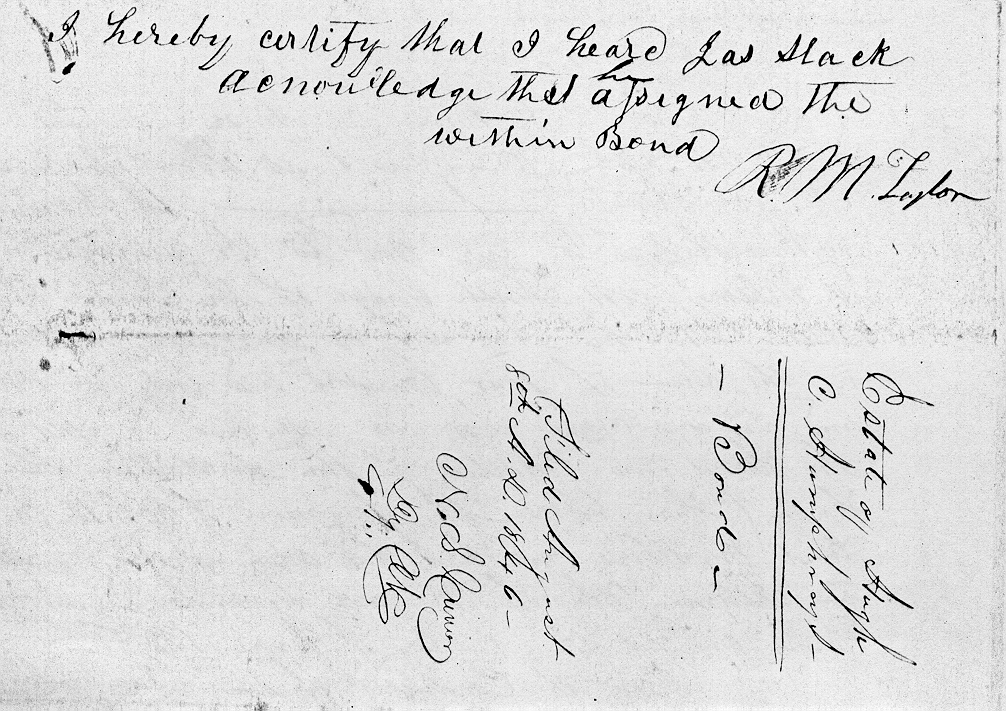 I hereby certify that I heard Jas Slack
acnowledge that he assigned the
within Bond
R. M. Taylor
Estate of Hugh
C. Humphreys
— Bond —
Filed August
8th A.D. 1846 —
N. S.
By